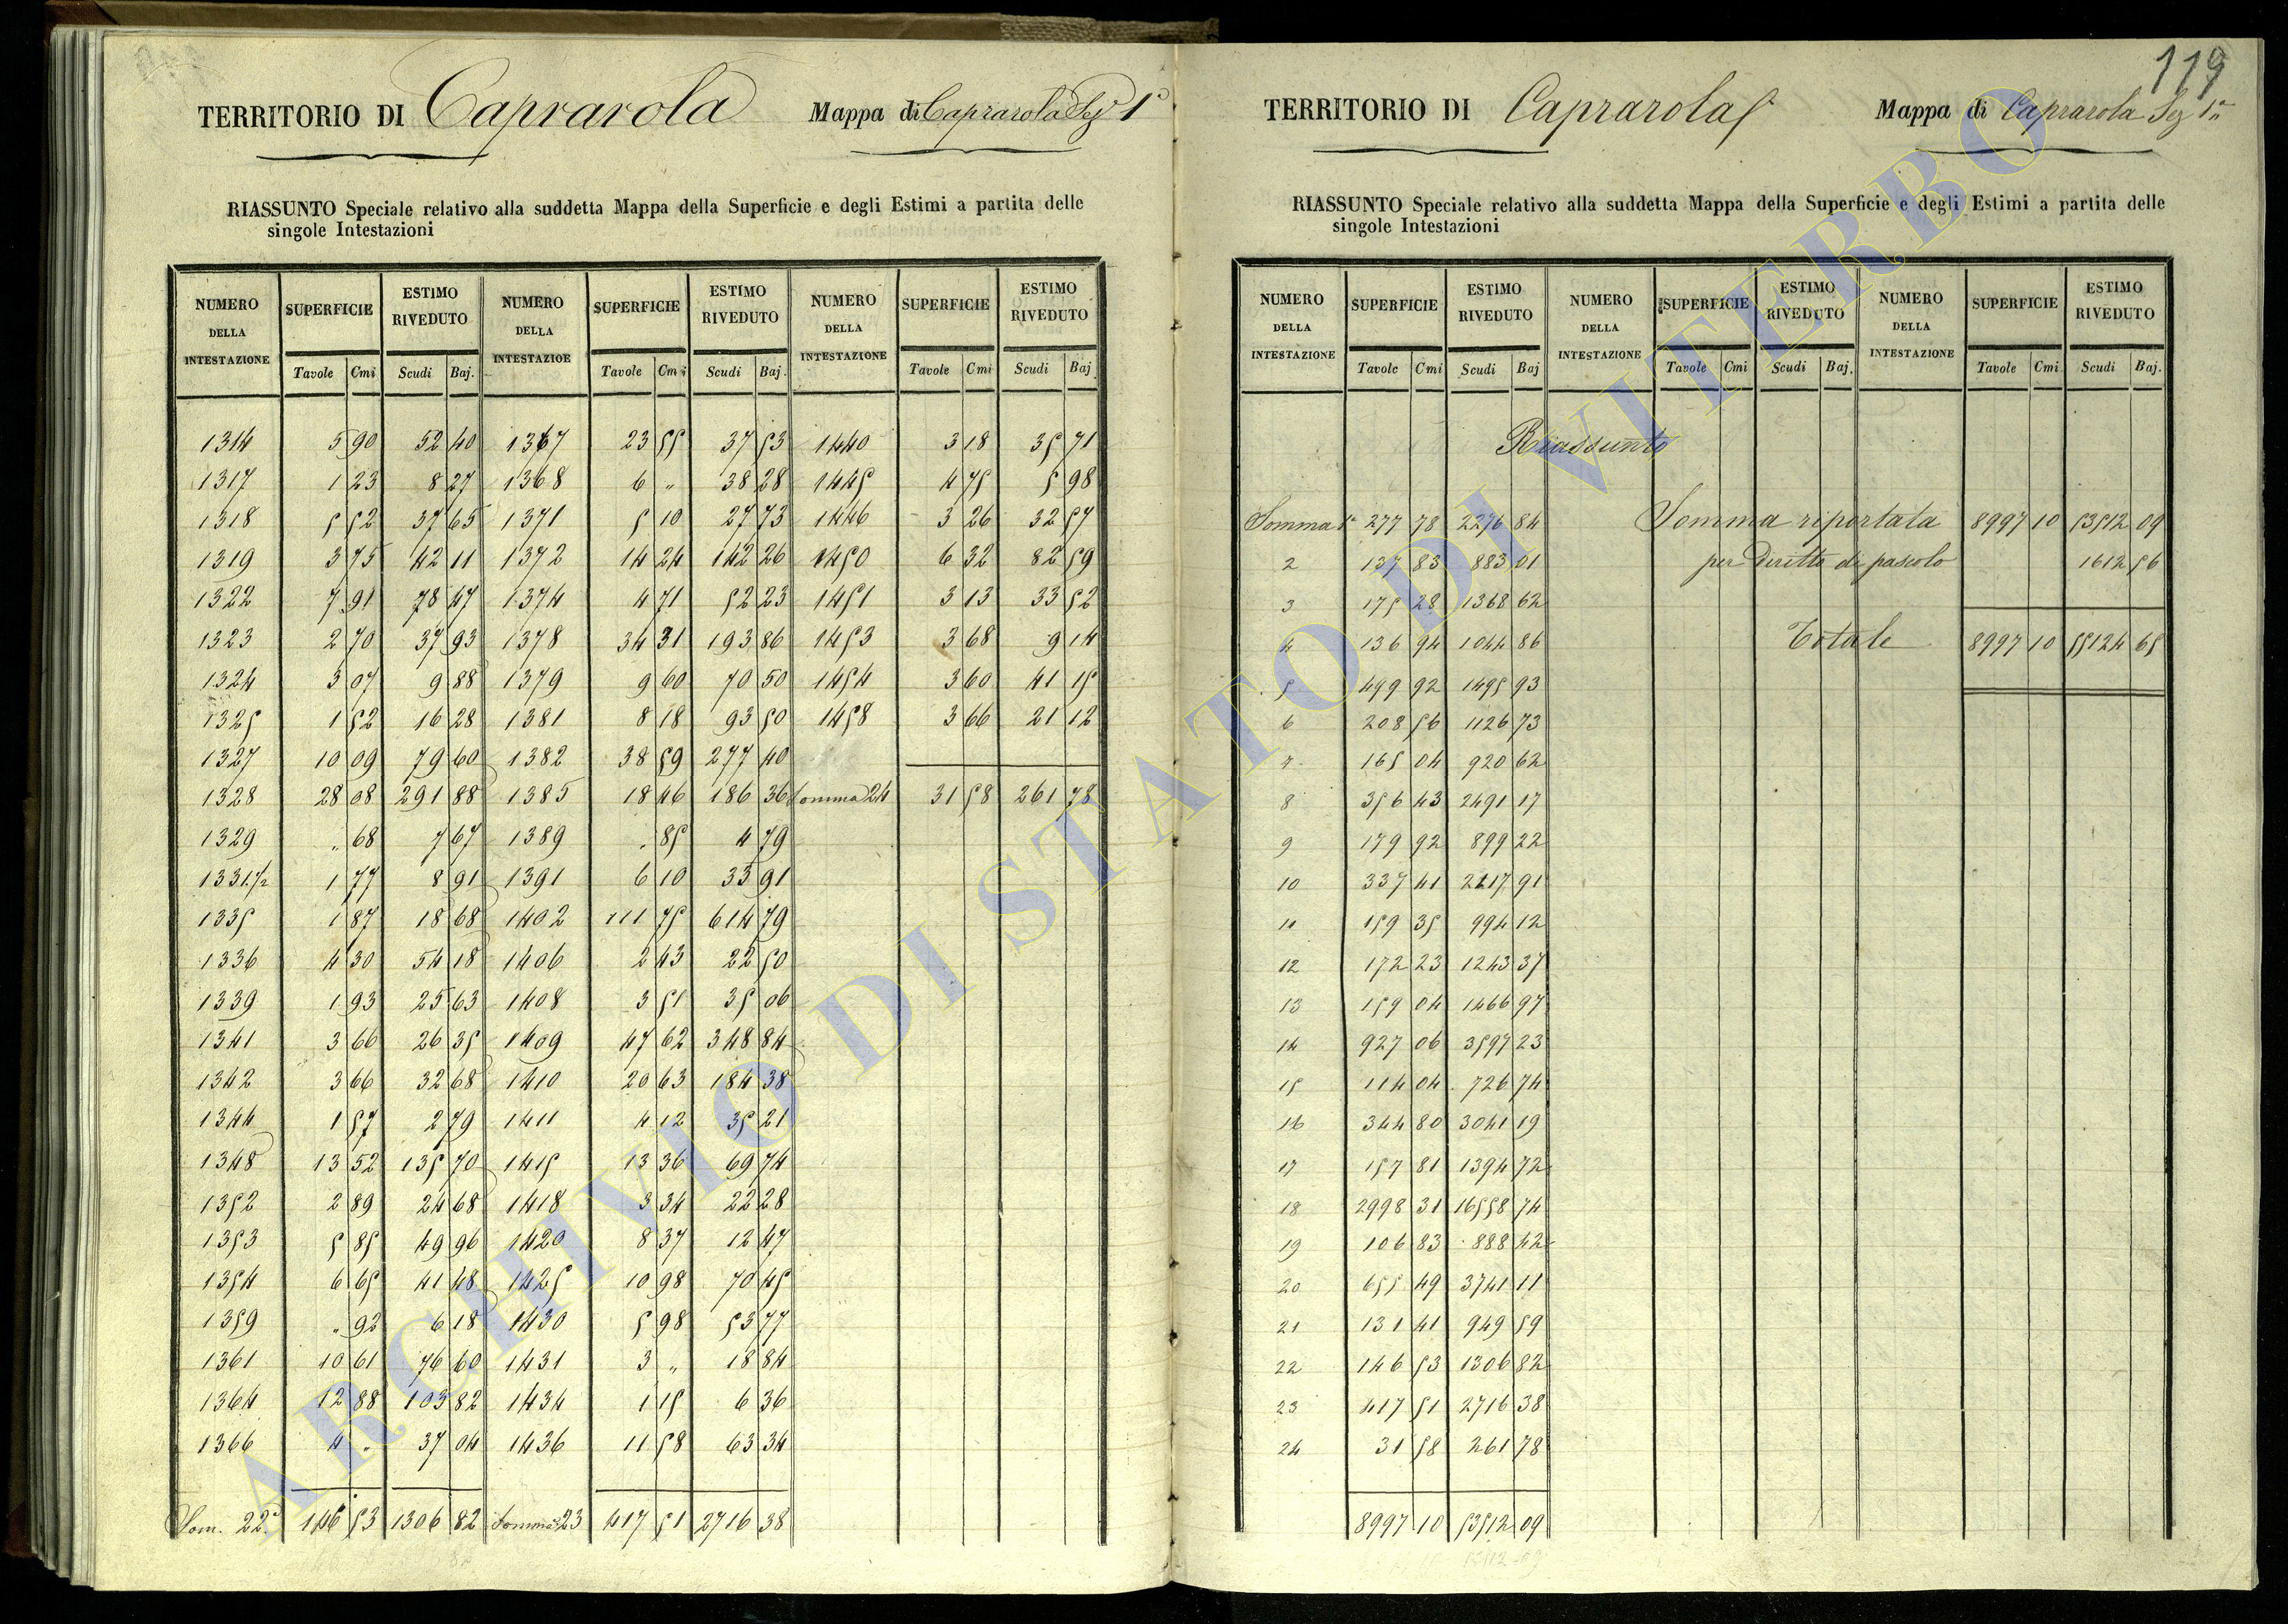 119
TERRITORIO DI Caprarola Mappa di Caprarola Sez 1ª
RIASSUNTO Speciale relativo alla suddetta Mappa della Superficie e degli Estimi a partita delle
singole Intestazioni
NUMERO DELLA INTESTAZIONE SUPERFICIE ESTIMO RIVEDUTO NUMERO DELLA INTESTAZIOE SUPERFICIE ESTIMO RIVEDUTO NUMERO DELLA INTESTAZIONE SUPERFICIE ESTIMO RIVEDUTO
Tavole Cmi Scudi Baj. Tavole Cmi Scudi Baj. Tavole Cmi Scudi Baj.
1314 5 90 52 40 1367 23 55 37 53 1440 3 18 35 71
1317 1 23 8 27 1368 6 „ 38 28 1445 4 75 5 98
1318 5 52 37 65 1371 5 10 27 73 1446 3 26 32 57
1319 3 75 42 11 1372 14 24 142 26 1450 6 32 82 59
1322 7 91 78 47 1374 4 71 52 23 1451 3 13 33 52
1323 2 70 37 93 1378 34 31 193 86 1453 3 68 9 14
1324 3 07 9 88 1379 9 60 70 50 1454 3 60 41 15
1325 1 52 16 28 1381 8 18 93 50 1458 3 66 21 12
1327 10 09 79 60 1382 38 59 277 40
1328 28 08 291 88 1385 18 46 186 36 Somma 24 31 58 261 78
1329 „ 68 7 67 1389 „ 85 4 79
1331 1/2 1 77 8 91 1391 6 10 33 91
1335 1 87 18 68 1402 111 75 614 79
1336 4 30 54 18 1406 2 43 22 50
1339 1 93 25 63 1408 3 51 35 06
1341 3 66 26 35 1409 47 62 348 84
1342 3 66 32 68 1410 20 63 184 38
1344 1 57 2 79 1411 4 12 35 21
1348 13 52 135 70 1415 13 36 69 74
1352 2 89 24 68 1418 3 34 22 28
1353 5 85 49 96 1420 8 37 12 47
1354 6 65 41 48 1425 10 98 70 45
1359 „ 92 6 18 1430 5 98 53 77
1361 10 61 76 60 1431 3 „ 18 84
1364 12 88 103 82 1434 1 15 6 36
1366 4 „ 37 04 1436 11 58 63 34
Som. 22ª 146 53 1306 82 Somma 23 417 51 2716 38
TERRITORIO DI Caprarola Mappa di Caprarola Sez 1ª
RIASSUNTO Speciale relativo alla suddetta Mappa della Superficie e degli Estimi a partita delle
singole Intestazioni
NUMERO DELLA INTESTAZIONE SUPERFICIE ESTIMO RIVEDUTO NUMERO DELLA INTESTAZIONE SUPERFICIE ESTIMO RIVEDUTO NUMERO DELLA INTESTAZIONE SUPERFICIE ESTIMO RIVEDUTO
Tavole Cmi Scudi Baj Tavole Cmi Scudi Baj. Tavole Cmi Scudi Baj.
Riassunto
Somma 1ª 277 78 2276 84 Somma riportata 8997 10 53512 09
2 137 83 883 01 per diritto di pascolo 1612 56
3 175 28 1368 62
4 136 94 1044 86 Totale 8997 10 55124 65
5 499 92 1495 93
6 208 56 1126 73
7 165 04 920 62
8 356 43 2491 17
9 179 92 899 22
10 337 41 2217 91
11 159 35 994 12
12 172 23 1243 37
13 159 04 1466 97
14 927 06 3597 23
15 114 04 726 74
16 344 80 3041 19
17 157 81 1394 72
18 2998 31 16558 74
19 106 83 888 42
20 655 49 3741 11
21 131 41 949 59
22 146 53 1306 82
23 417 51 2716 38
24 31 58 261 78
8997 10 53512 09
ARCHIVIO DI STATO DI VITERBO